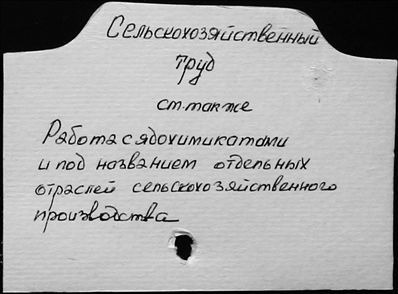 Сельскохозяйственный
труд
ст. также
Работа с ядохимикатами
и под названием отдельных
отраслей сельскохозяйственного
производства